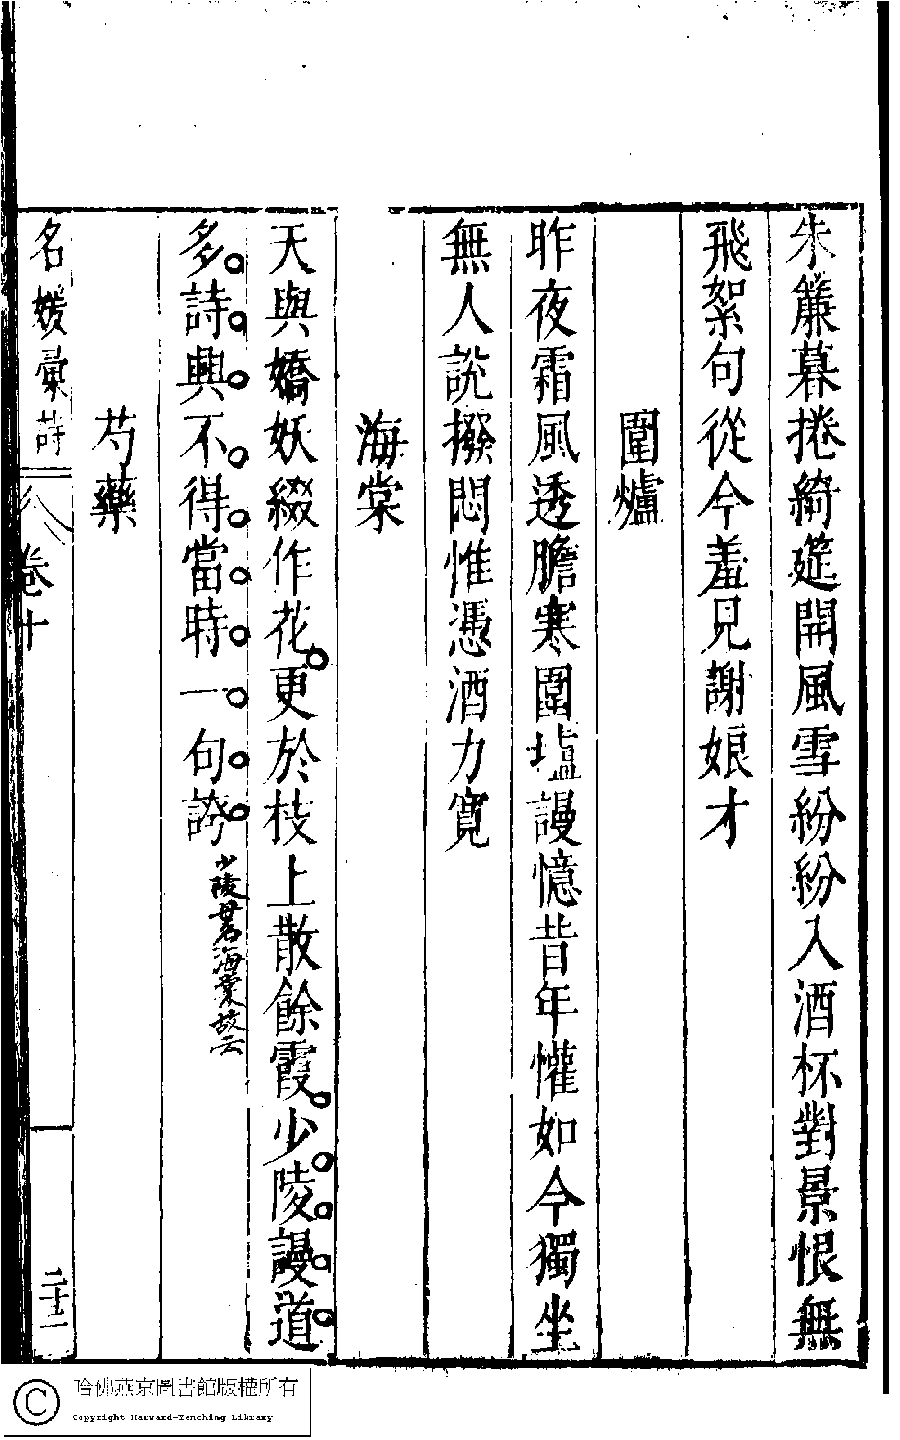 朱簾暮捲綺筵開風雪紛紛入酒杯對景恨無
飛絮句從今羞見謝娘才
圍爐
昨夜霜風透膽寒圍壚謾憶昔年懽如今獨坐
無人說撥悶惟憑酒力寬
海棠
天與嬌妖綴作花更於枝上散餘霞少陵謾道
多詩興不得當時一句誇
少陵
海棠故云
芍藥
名媛彙詩
卷十
二十二
哈佛燕京圖書館版權所有
Copyright Harvard-Yenching Library